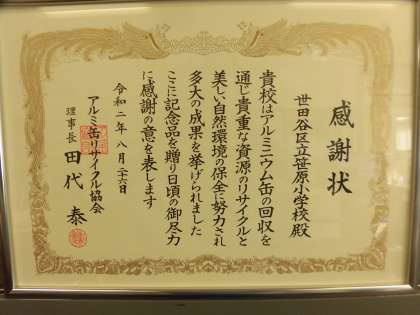 感謝状
世田谷区立笹原小学校殿
貴校はアルミニウム缶の回収を
通じ貴重な資源のリサイクルと
美しい自然環境の保全に努力され
多大の成果を挙げられました
ここに記念品を贈り日頃の御尽力
に感謝の意を表します
令和二年八月二十六日
アルミ缶リサイクル協会
理事長 田代泰